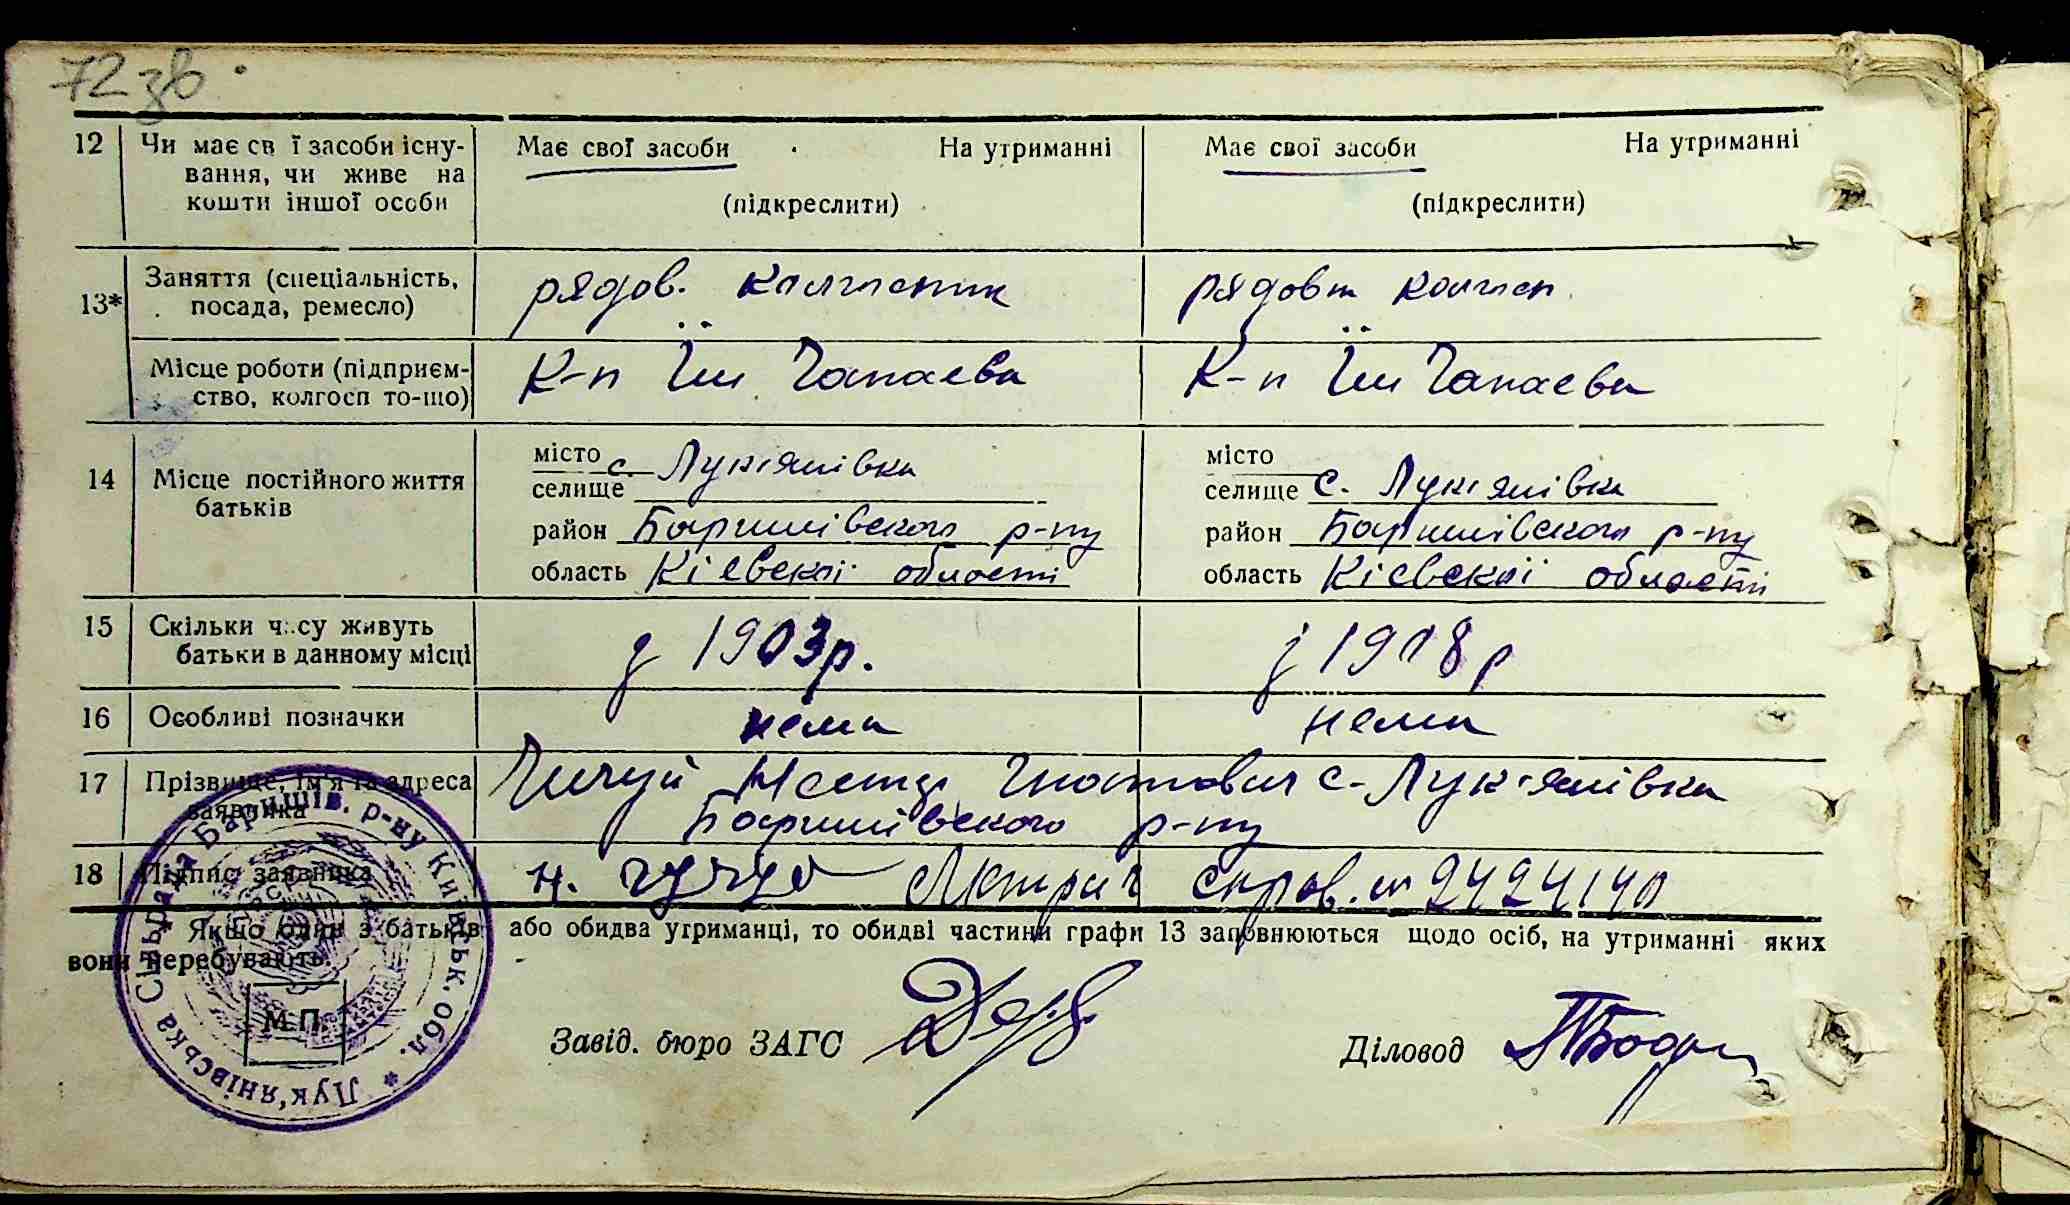 72 зв.
12 Чи має св ї засоби існу- Має свої засоби На утриманні Має свої засоби На утриманні
вання, чи живе на
кошти іншої особи (підкреслити) (підкреслити)
Заняття (спеціальність, рядов. колгоспник рядовий колгосп.
13* посада, ремесло)
Місце роботи (підприєм- К-п Їм Чапаева К-п Їм Чапаева
ство, колгосп то-що)
місто с. Лукіянівка місто
14 Місце постійного життя селище селище с. Лукіянівка
батьків район Баришівского р-ну район Баришівского р-ну
область Кіевскої області область Кіевскої області
15 Скільки часу живуть з 1903р. з 1908 р
батьки в данному місці
16 Особливі позначки нема нема
17 Прізвище, ім'я та адреса Гнатович с-Лук'янівка
заявника Баришівского р-ну
18 Підпис заявника н.
Якщо один з батьків або обидва утриманці, то обидві частини графи 13 заповнюються щодо осіб, на утриманні яких
вони перебувають.
М.П.
Завід. бюро ЗАГС Діловод
Лук'янівська Сільрада Баришів. р-ну Київськ. обл. *